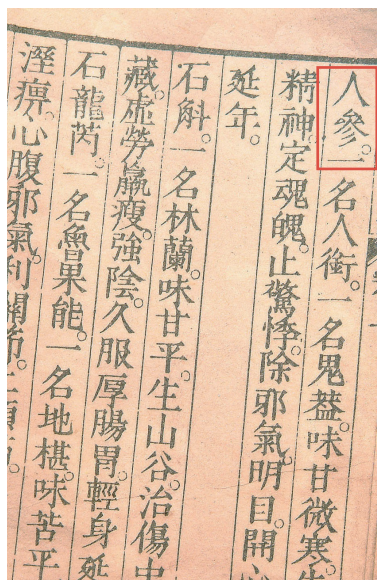 人參。一名人銜。一名鬼蓋。味甘微寒。
精神。定魂魄。止驚悸。除邪氣。明目。開心
延年。
石斛。一名林蘭。味甘平。生山谷。治傷中
藏。虛勞羸瘦。強陰。久服厚腸胃。輕身延
石龍芮。一名魯果能。一名地椹。味苦平
溼痹。心腹邪氣。利關節。